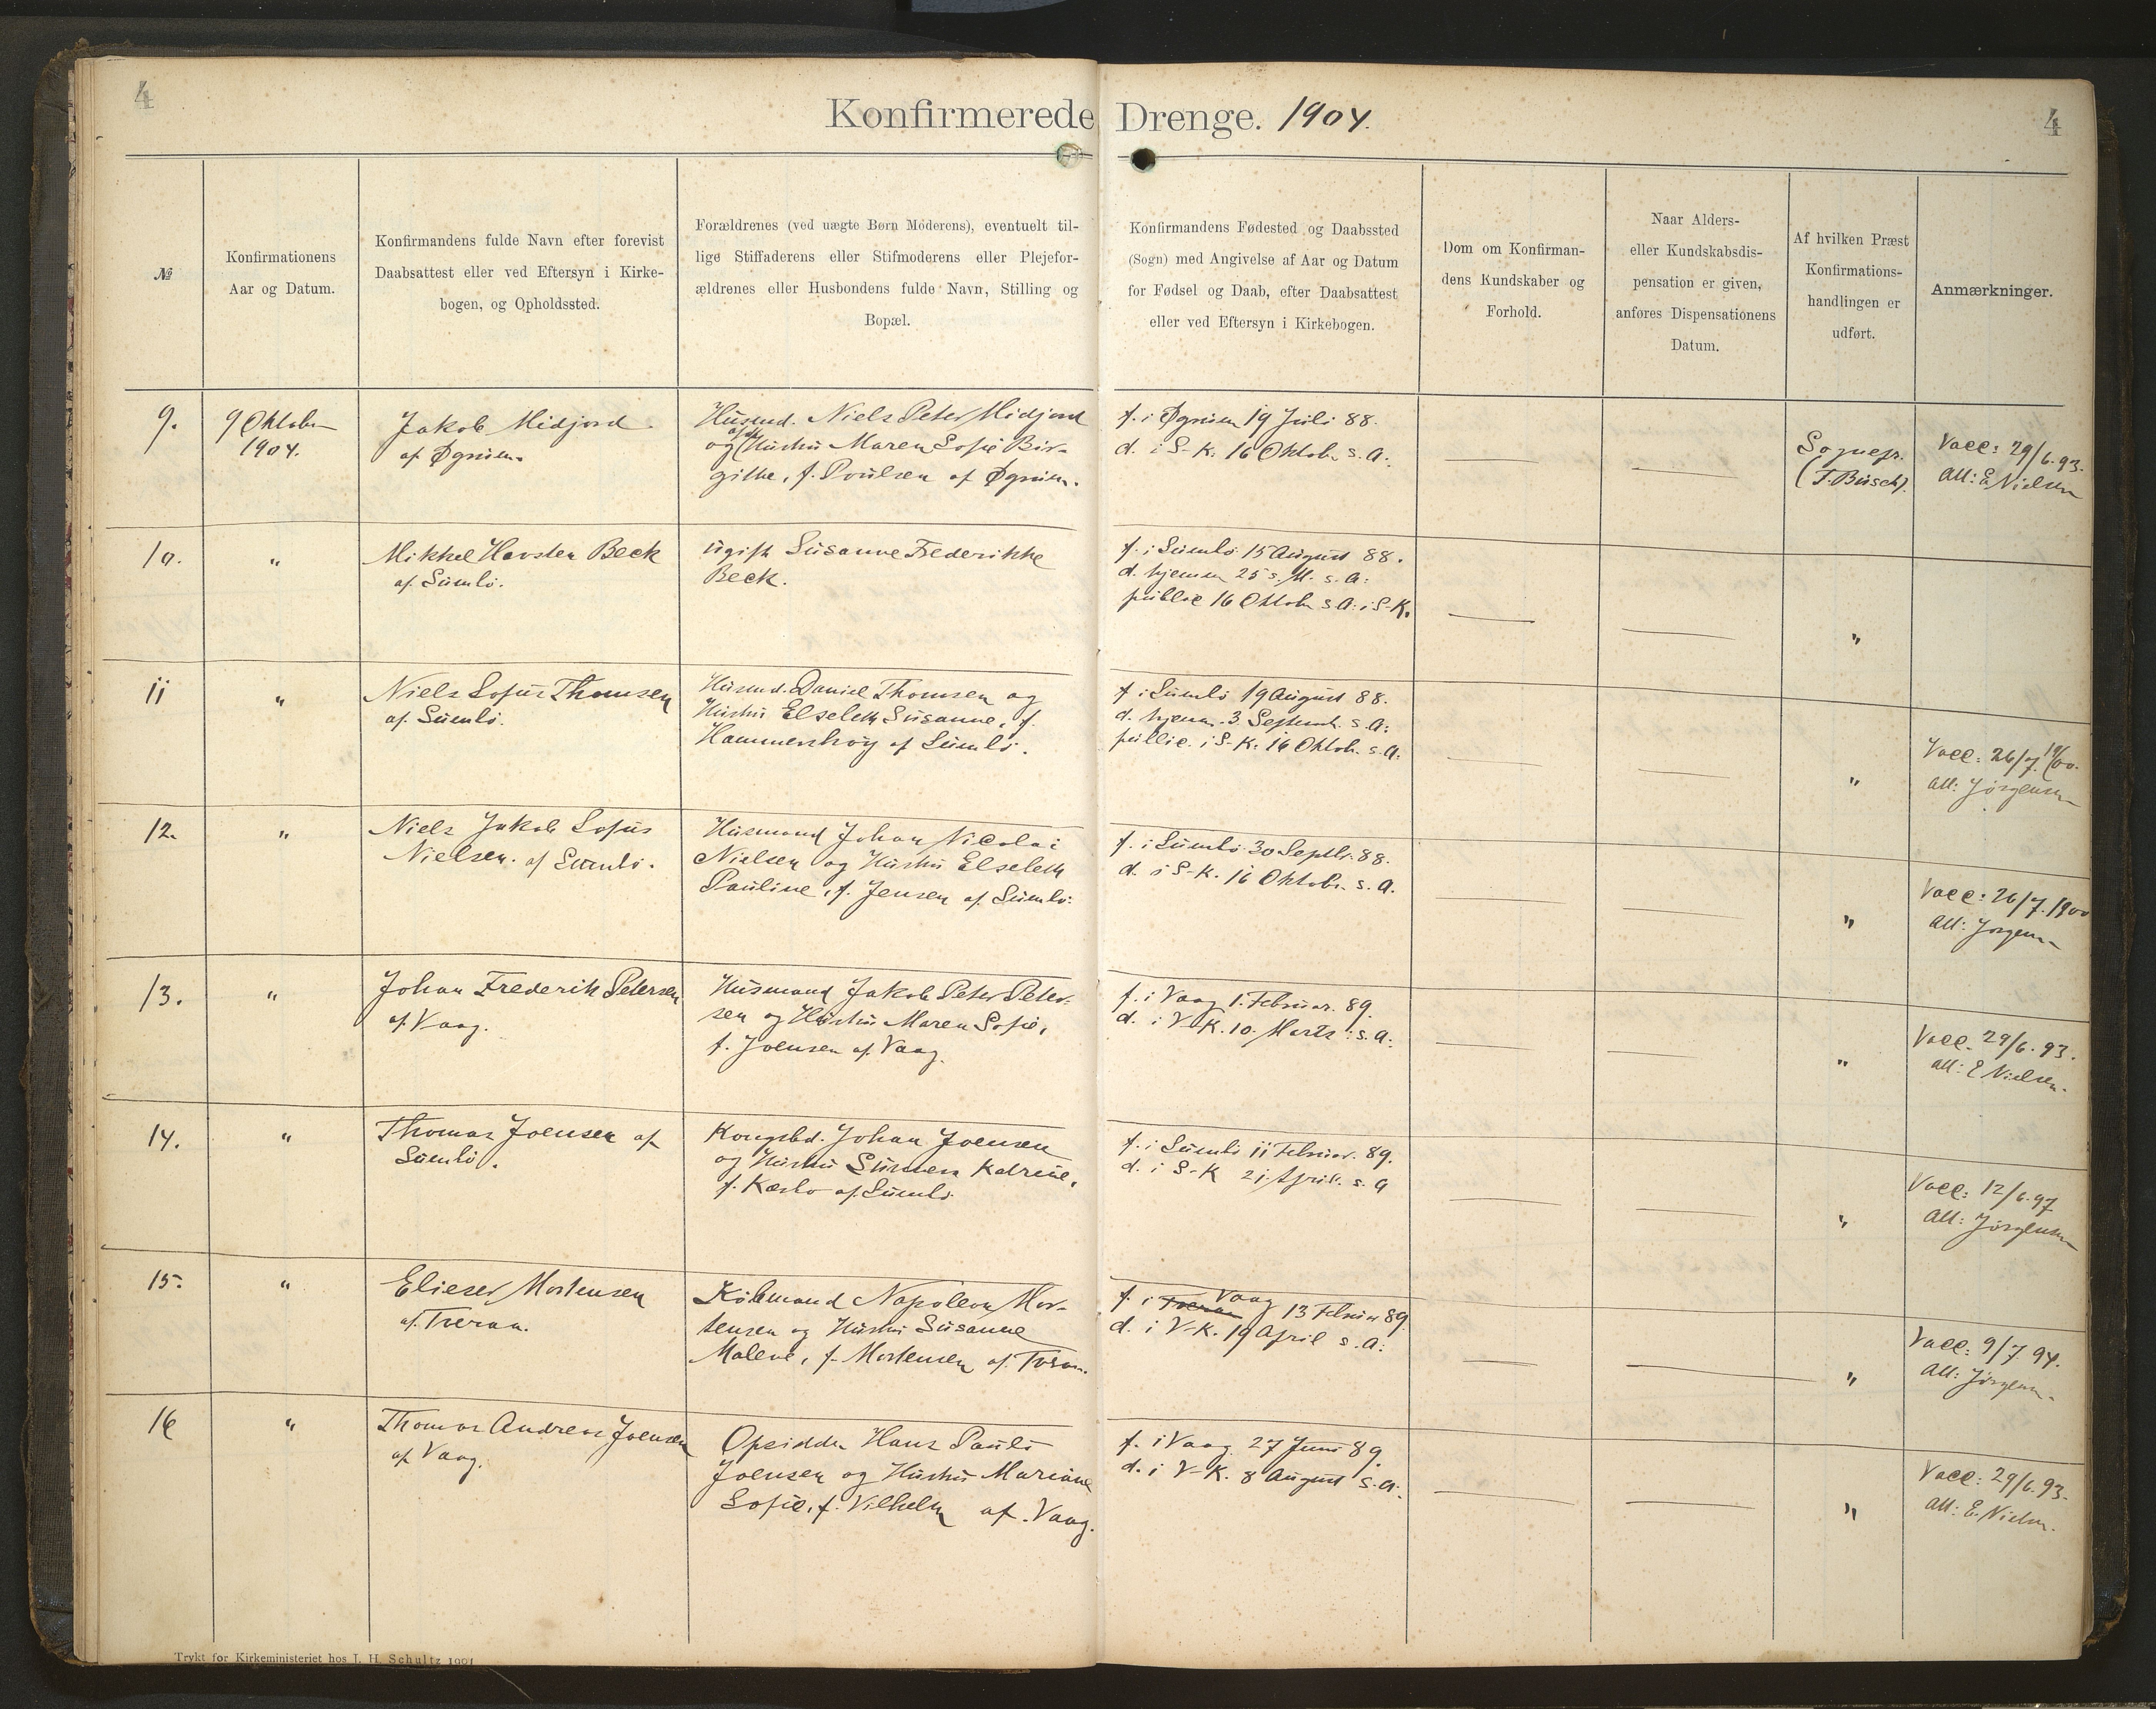 4
Konfirmerede Drenge. 1904.
4
№
Konfirmationens
Aar og Datum.
Konfirmandens fulde Navn efter forevist
Daabsattest eller ved Eftersyn i Kirke-
bogen, og Opholdssted.
Forældrenes (ved uægte Børn Moderens), eventuelt til-
lige Stiffaderens eller Stifmoderens eller Plejefor-
ældrenes eller Husbondens fulde Navn, Stilling og
Bopæl.
Konfirmandens Fødested og Daabssted
(Sogn) med Angivelse af Aar og Datum
for Fødsel og Daab, efter Daabsattest
eller ved Eftersyn i Kirkebogen.
Dom om Konfirman-
dens Kundskaber og
Forhold.
Naar Alders-
eller Kundskabsdis-
pensation er given,
anføres Dispensationens
Datum.
Af hvilken Præst
Konfirmations-
handlingen er
udført.
Anmærkninger.
9.
9 Oktober
1904.
Jakob Midjord
af Øgrum.
Husmd. Niels Peter Midjord
og Hustru Maren Sofie Bir-
githe, f. Poulsen af Øgrum.
f. i Øgrum 19 Juli 88.
d. i S-K. 16 Oktob. s. A.
Sognepr.
(T. Busch).
Vacc: 29/6. 93.
Att: E. Nielsen
10.
"
Mikkel Havsten Beck
af Sumbö.
ugift Susanne Frederikke
Beck.
f. i Sumbö 15 August 88.
d. hjemme 25 s. M. s. A:
public 16 Oktob. s. A: i S-K.
"
11
"
Niels Sofus Thomsen
af Sumbö.
Husmd. Daniel Thomsen og
Hustru Elsebeth Susanne, f.
Hammershøj af Sumbö.
f. i Sumbö 19 August 88.
d. hjem. 3 Septemb. s. A:
public. i S-K. 16 Oktob. s. A.
"
Vacc: 26/7. 19/00.
Att: Jørgensen
12.
"
Niels Jakob Sofus
Nielsen. af Sumbö.
Husmand Johan Nicolai
Nielsen og Hustru Elsebeth
Pauline, f. Jensen af Sumbö.
f. i Sumbö 30 Septb. 88.
d. i S-K. 16 Oktob. s. A.
"
Vacc: 26/7. 1900
Att: Jørgensen
13.
"
Johan Frederik Petersen
af Vaag.
Husmand Jakob Peter Peter-
sen og Hustru Maren Sofie,
f. Joensen af Vaag.
f. i Vaag 1. Februar. 89.
d. i V-K. 10. Marts s. A:
"
Vacc. 29/6. 93.
Att: E Nielsen.
14.
"
Thomas Joensen af
Sumbö.
Kongsbd. Johan Joensen
og Hustru Sunneva Katrine,
f. Kærbo af Sumbö.
f. i Sumbö 11 Februar. 89.
d. i S-K 21. April. s. A
"
Vacc: 12/6. 97
Att: Jørgensen
15.
"
Elieser Mortensen
af Tveraa.
Købmand Napoleon Mor-
tensen og Hustru Susanne
Malene, f. Mortensen af Tveraa.
f. i Tveraa Vaag 13 Februar 89.
d. i V-K. 19 April s. A:
"
Vacc: 9/7 94.
Att: Jørgensen
16
"
Thomas Andreas Joensen
af Vaag.
Opsidder Hans Pauli
Joensen og Hustru Mariane
Sofie, f. Vilhelm af Vaag.
f. i Vaag. 27 Juni 89.
d. i V-K. 8 August s. A.
"
Vacc: 29/6. 93.
Att: E. Nielsen.
Trykt for Kirkeministeriet hos J. H. Schultz 1901